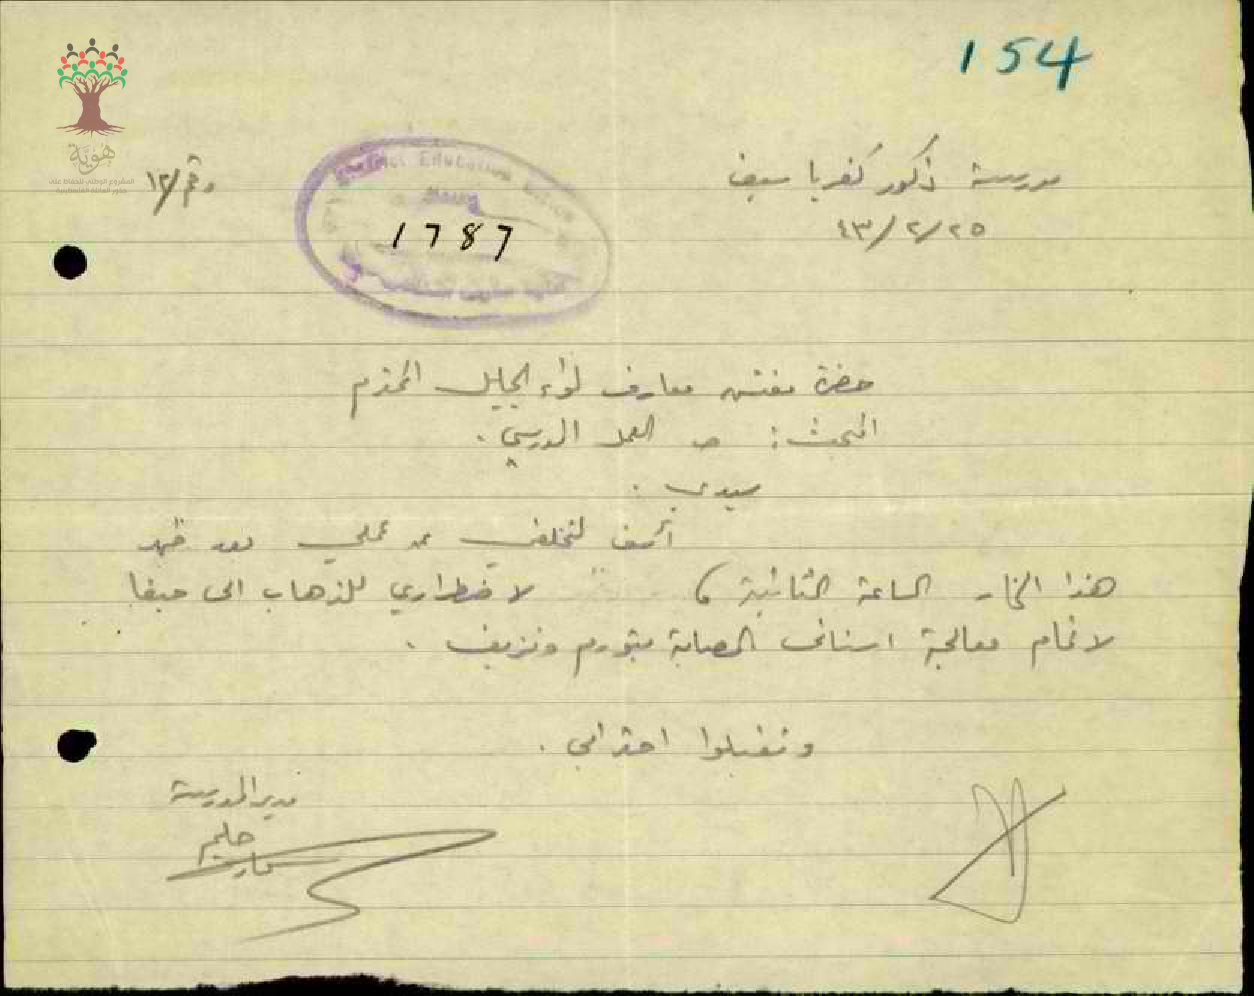 154
هويّة
المشروع الوطني للحفاظ على
جذور العائلة الفلسطينية
مدرسة ذكور كفرياسيف
رقم/١٢
٤٣/٢/٢٥
District Education
1787
حضرة مفتش معارف لواء الجليل المحترم
المبحث: العمل المدرسي.
سيدي.
آسف لتخلفي عن عملي بعد ظهر
هذا النهار الساعة الثانية، لاضطراري للذهاب الى حيفا
لاتمام معالجة اسناني المصابة بتورم ونزيف.
وتفضلوا احترامي.
مدير المدرسة
حليم